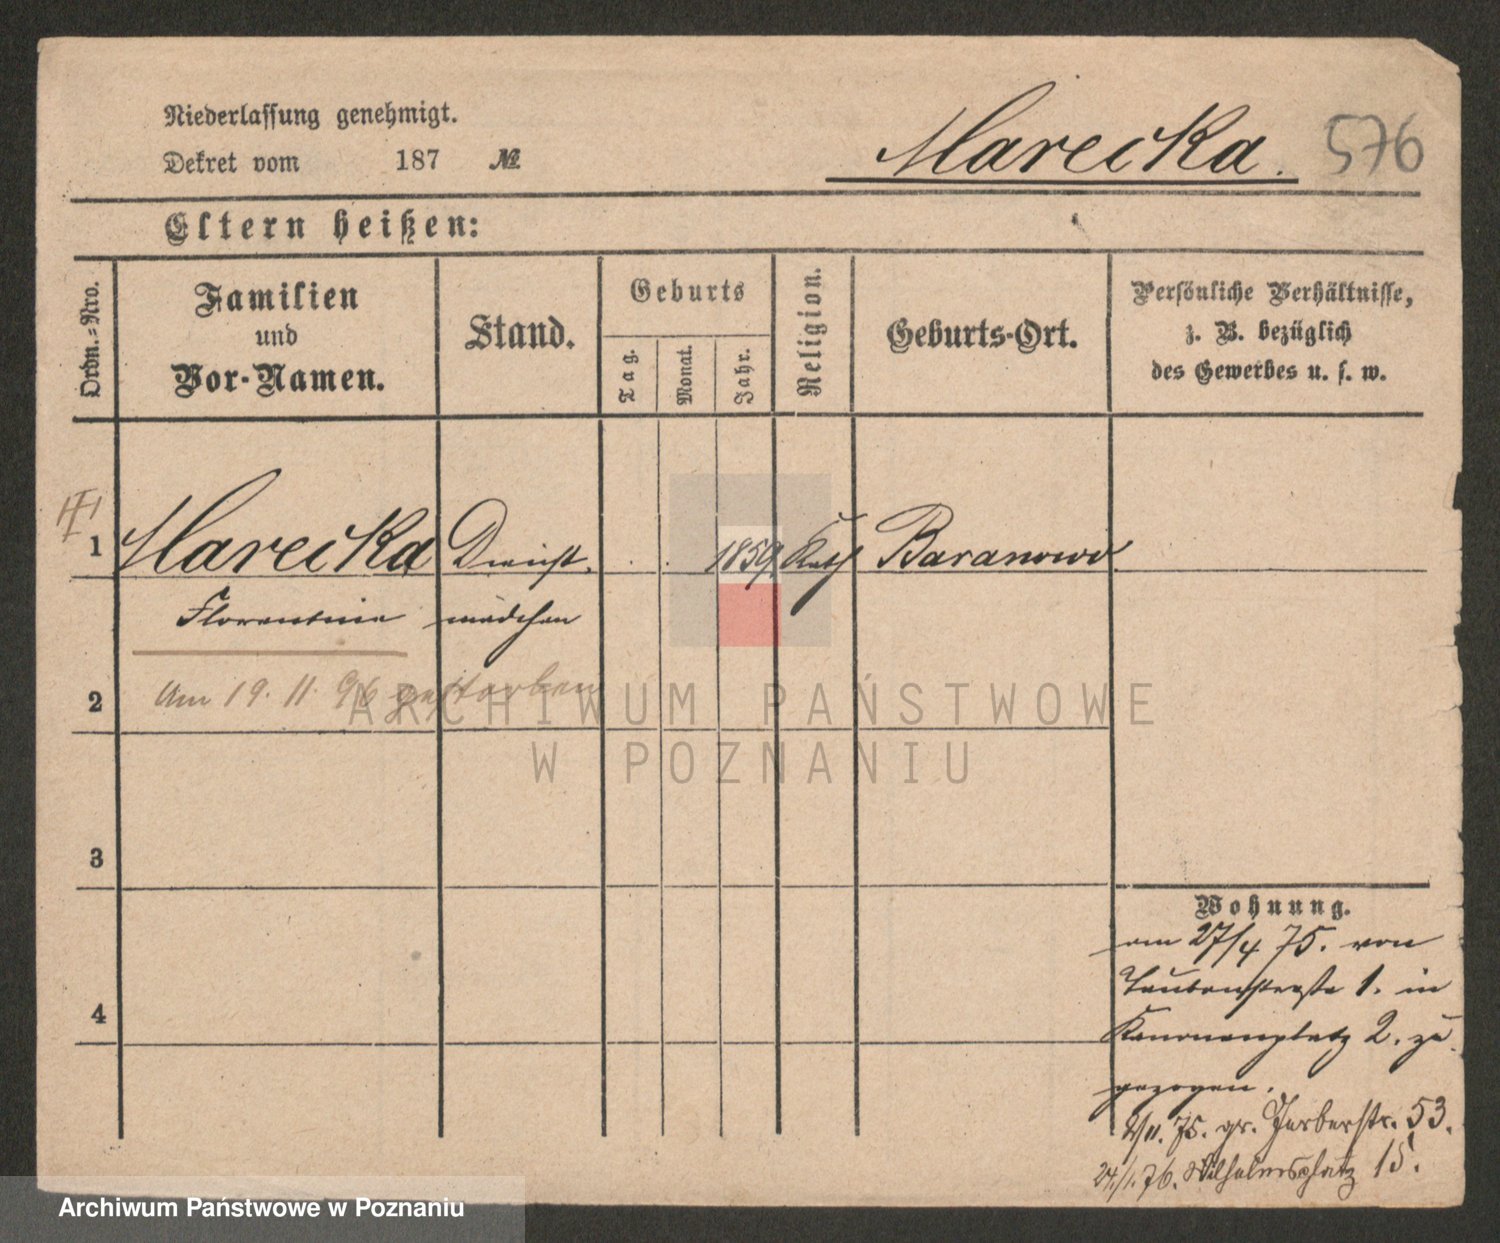 Niederlassung genehmigt.
Dekret vom 187 №
Marecka. 576
Eltern heißen:
Ordn.-Nro.
Familien
und
Vor-Namen.
Stand.
Geburts
Tag.
Monat.
Jahr.
Religion.
Geburts-Ort.
Persönliche Verhältnisse,
z. B. bezüglich
des Gewerbes u. s. w.
1 Marecka Dienst- . . 1859. Kath Baranowo
Florentine mädchen
2 Am 19. 11. 96 gestorben
3
4
Wohnung.
am 27/4 75. von
Taubenstraße 1. in
Kanonenplatz 2. zu
gezogen.
2/11. 75. gr. Gerberstr. 53.
24./1. 76. Wilhelmsplatz 15.
ARCHIWUM PAŃSTWOWE
W POZNANIU
Archiwum Państwowe w Poznaniu